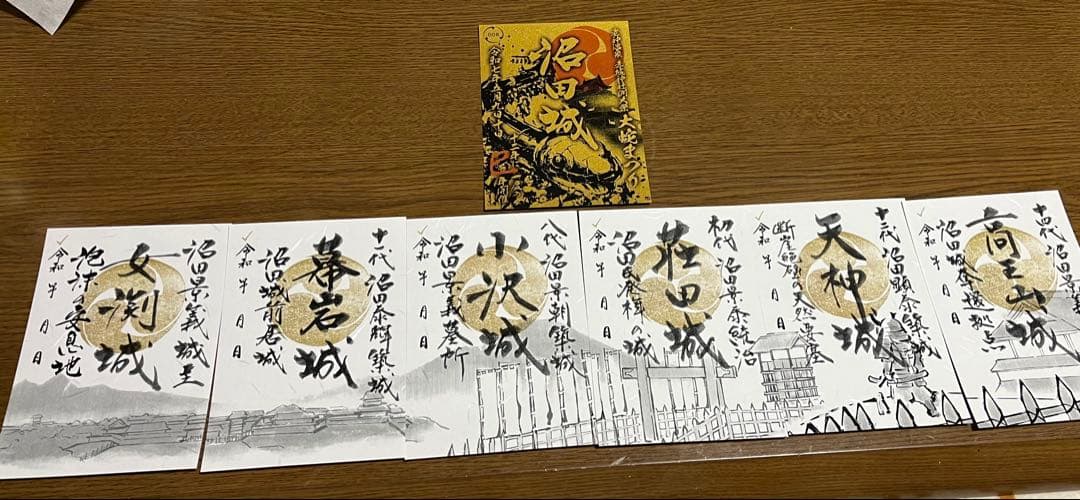 沼田城
大蛇まつり
巳
沼田景義城主
女渕城
泡沫の安息地
令和 年 月 日
十一代 沼田泰輝築城
幕岩城
沼田城前居城
令和 年 月 日
八代 沼田景朝築城
小沢城
沼田景義墓所
令和 年 月 日
初代 沼田景泰統治
荘田城
沼田氏発祥の城
令和 年 月 日
十二代 沼田顕泰築城
天神城
令和 年 月 日
十四代 沼田景義
高王山城
沼田城奪還拠点
令和 年 月 日